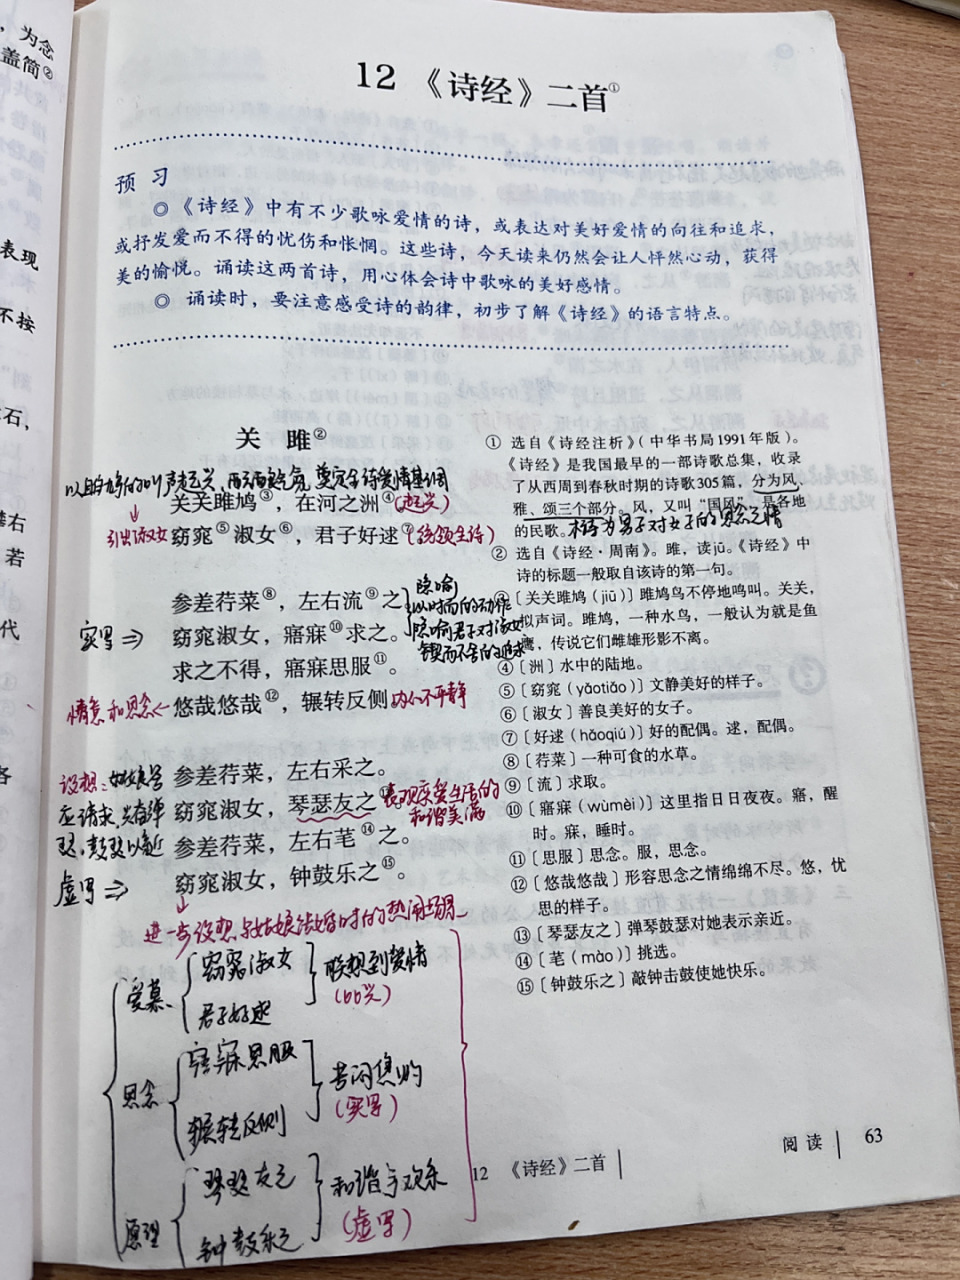 ，为念
盖简②
表现
不按
石，
右
若
代
各
12 《诗经》二首①
预 习
◎《诗经》中有不少歌咏爱情的诗，或表达对美好爱情的向往和追求，
或抒发爱而不得的忧伤和怅惘。这些诗，今天读来仍然会让人怦然心动，获得
美的愉悦。诵读这两首诗，用心体会诗中歌咏的美好感情。
◎ 诵读时，要注意感受诗的韵律，初步了解《诗经》的语言特点。
关 雎②
关关雎鸠③，在河之洲④(起兴)
引出淑女 窈窕⑤淑女⑥，君子好逑⑦(统领全诗)
参差荇菜⑧，左右流⑨之
实写⇒ 窈窕淑女，寤寐⑩求之。
求之不得，寤寐思服⑪。
悠哉悠哉⑫，辗转反侧 内心不平静
隐喻
以时而的动作
隐喻君子对淑女
参差荇菜，左右采之。
窈窕淑女，琴瑟友之⑬ 表现亲爱生活的
和谐美满
参差荇菜，左右芼⑭之。
窈窕淑女，钟鼓乐之⑮。
虚写⇒
进一步设想与姑娘结婚时的热闹场景
爱慕
窈窕淑女
君子好逑
联想到爱情
(比兴)
思念
寤寐思服
辗转反侧
(实写)
琴瑟友之
钟鼓乐之
和谐与欢乐
(虚写)
① 选自《诗经注析》（中华书局1991年版）。
《诗经》是我国最早的一部诗歌总集，收录
了从西周到春秋时期的诗歌305篇，分为风、
雅、颂三个部分。风，又叫“国风”，是各地
的民歌。本诗为男子对女子的思念之情
② 选自《诗经·周南》。雎，读jū。《诗经》中
诗的标题一般取自该诗的第一句。
③〔关关雎鸠（jiū）〕雎鸠鸟不停地鸣叫。关关，
拟声词。雎鸠，一种水鸟，一般认为就是鱼
鹰，传说它们雌雄形影不离。
④〔洲〕水中的陆地。
⑤〔窈窕（yǎotiǎo）〕文静美好的样子。
⑥〔淑女〕善良美好的女子。
⑦〔好逑（hǎoqiú）〕好的配偶。逑，配偶。
⑧〔荇菜〕一种可食的水草。
⑨〔流〕求取。
⑩〔寤寐（wùmèi）〕这里指日日夜夜。寤，醒
时。寐，睡时。
⑪〔思服〕思念。服，思念。
⑫〔悠哉悠哉〕形容思念之情绵绵不尽。悠，忧
思的样子。
⑬〔琴瑟友之〕弹琴鼓瑟对她表示亲近。
⑭〔芼（mào）〕挑选。
⑮〔钟鼓乐之〕敲钟击鼓使她快乐。
12 《诗经》二首
阅读 63